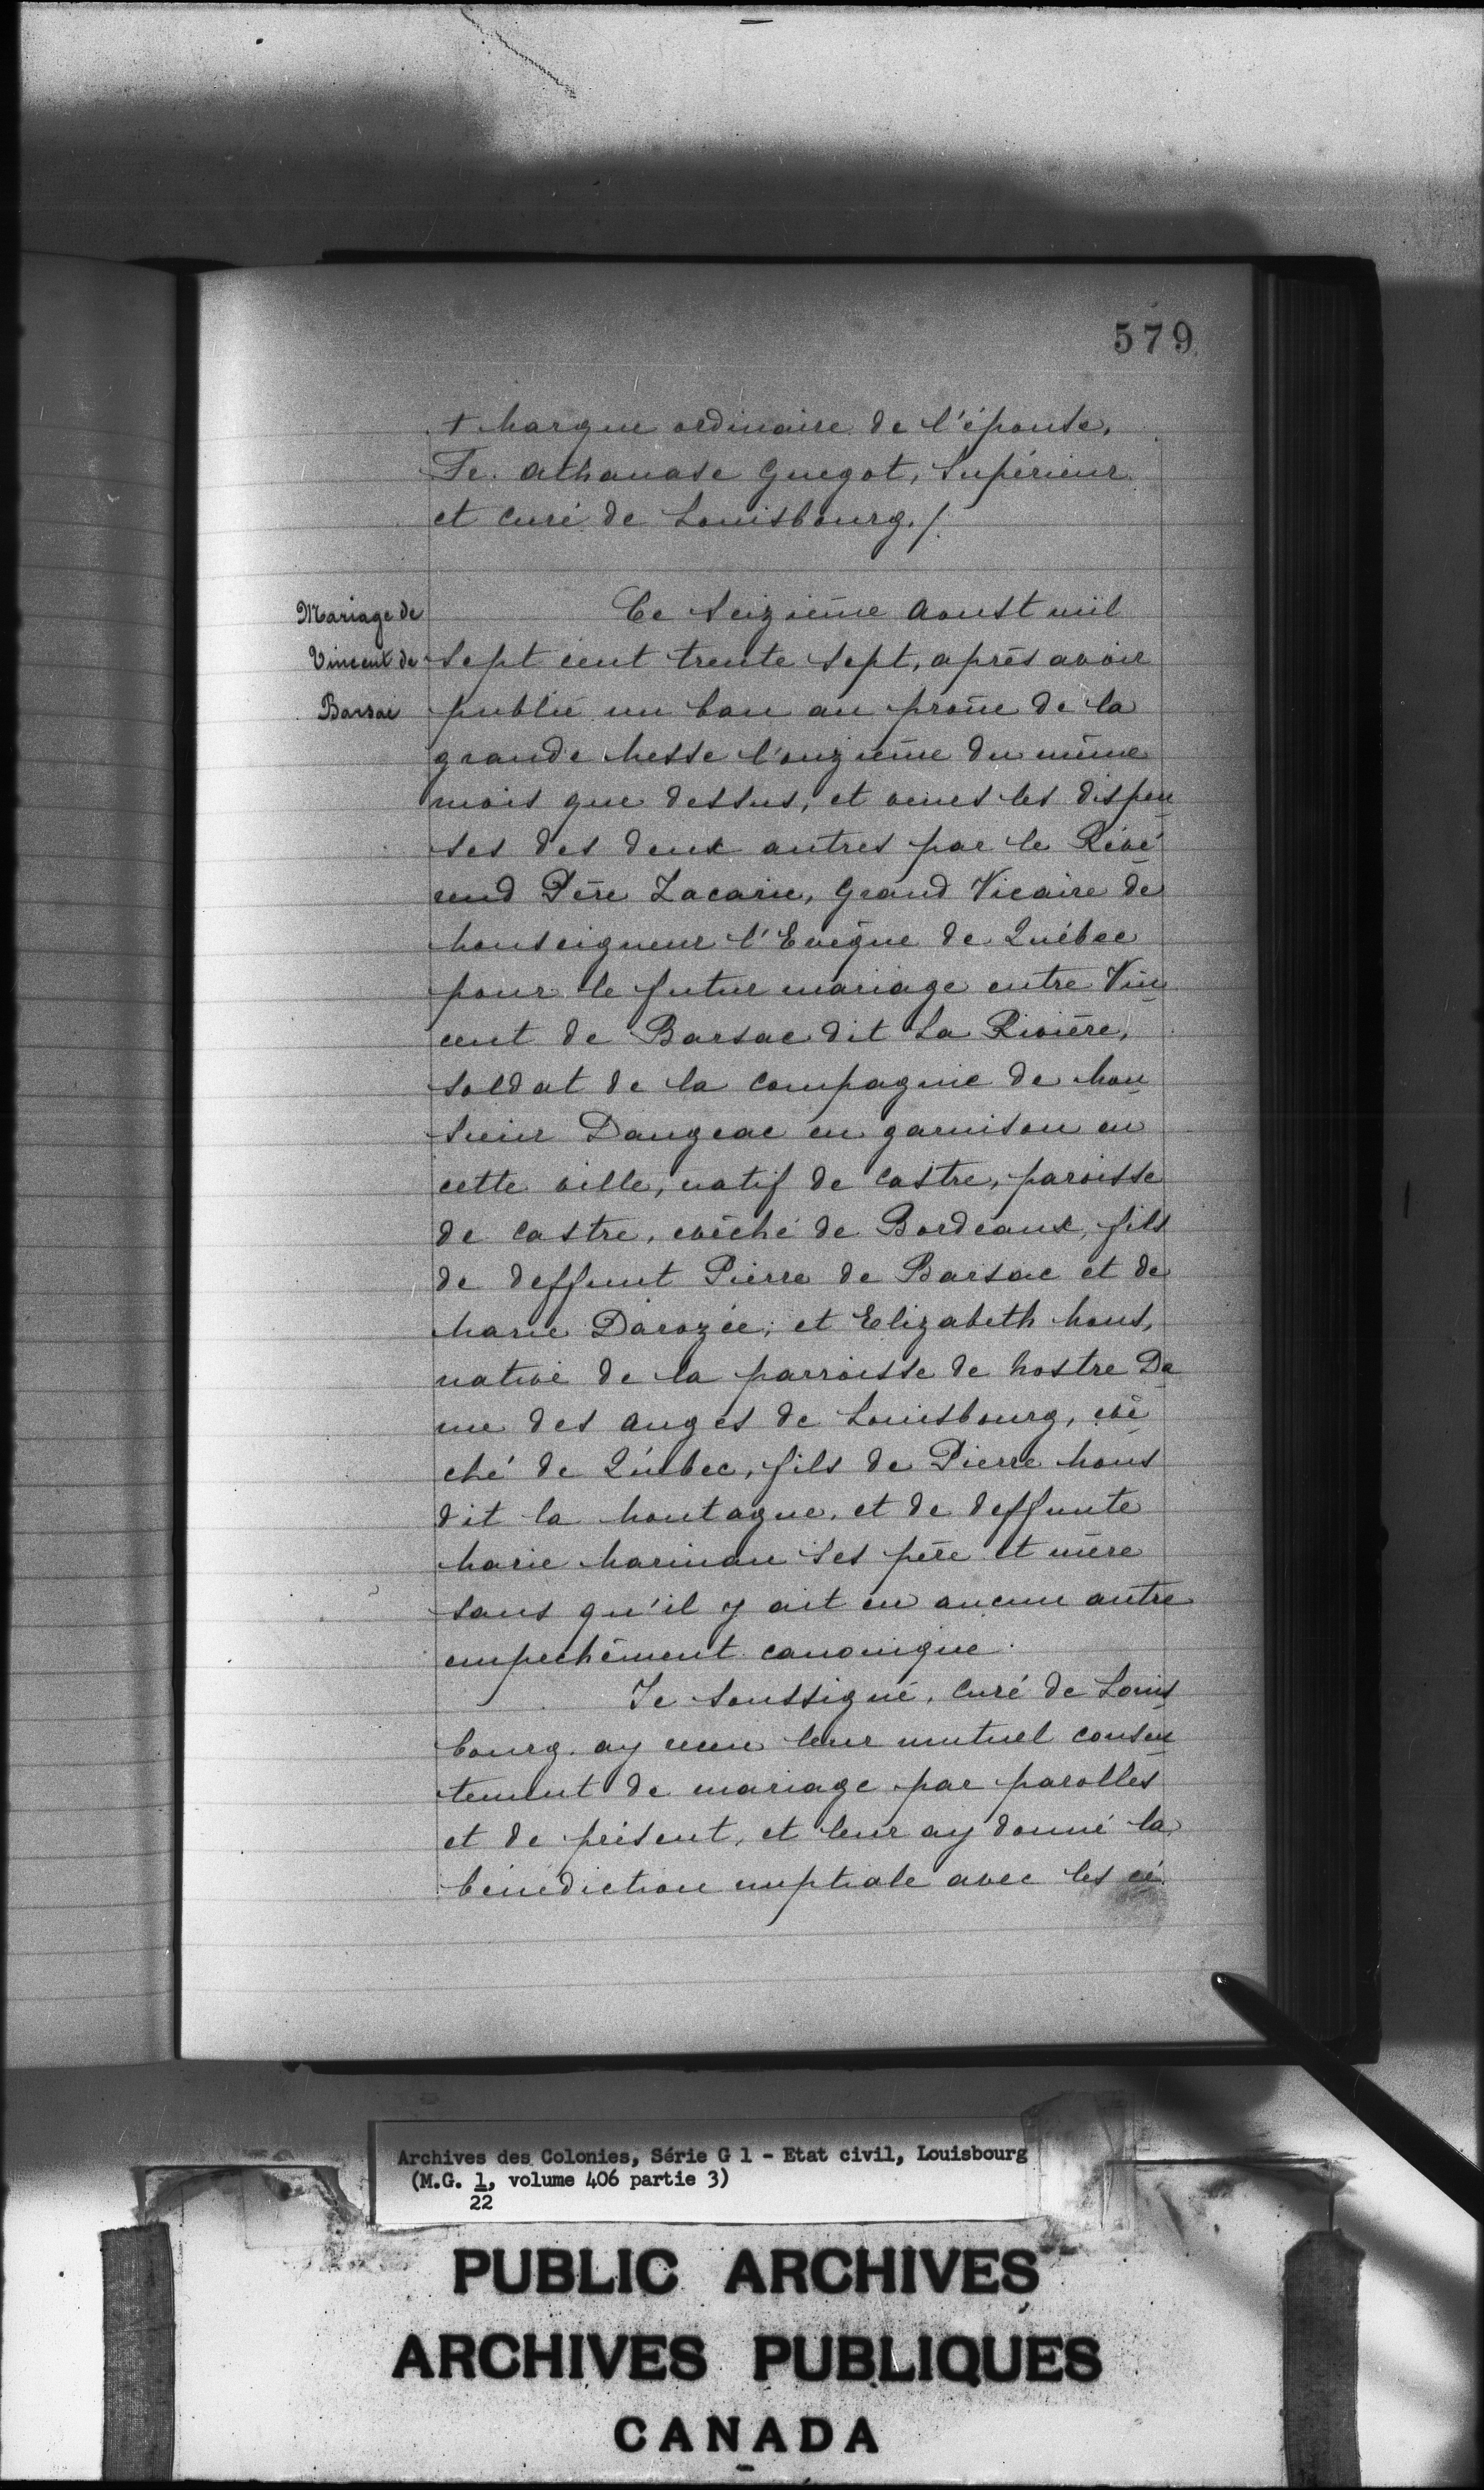 579
+ Marque ordinaire de l'épouse.
Fe. Athanase Guegot, Supérieur
et curé de Louisbourg./.
Mariage de
Vincent de
Barsac
Ce Seizième Aoust mil
Sept cent trente Sept, après avoir
publié un ban au prône de la
grande Messe l'onzième du même
mois que dessus, et veues les dispen
ses des deux autres par le Révé
rend Père Zacarie, Grand Vicaire de
Monseigneur l'Evêque de Québec
pour le futur mariage entre Vin
cent de Barsac dit La Rivière,
Soldat de la Compagnie de Mon
sieur Dangeac en garnison en
cette ville, natif de Castre, paroisse
de Castre, evêché de Bordeaux, fils
de deffunt Pierre de Barsac et de
Marie Darozée; et Elizabeth Mous,
native de la parroisse de Nostre Da
me des Anges de Louisbourg, evê
ché de Québec, fils de Pierre Mous
dit la Montagne, et de deffunte
Marie Marinau ses père et mère
sans qu'il y ait eu aucun autre
empechêment canonique.
Je Soussigné, Curé de Louis
bourg ay receu leur mutuel consen
tement de mariage par parolles
et de présent, et leur ay donné la
bénédiction nuptiale avec les cé
Archives des Colonies, Série G 1 - Etat civil, Louisbourg
(M.G. 1, volume 406 partie 3)
22
PUBLIC ARCHIVES
ARCHIVES PUBLIQUES
CANADA